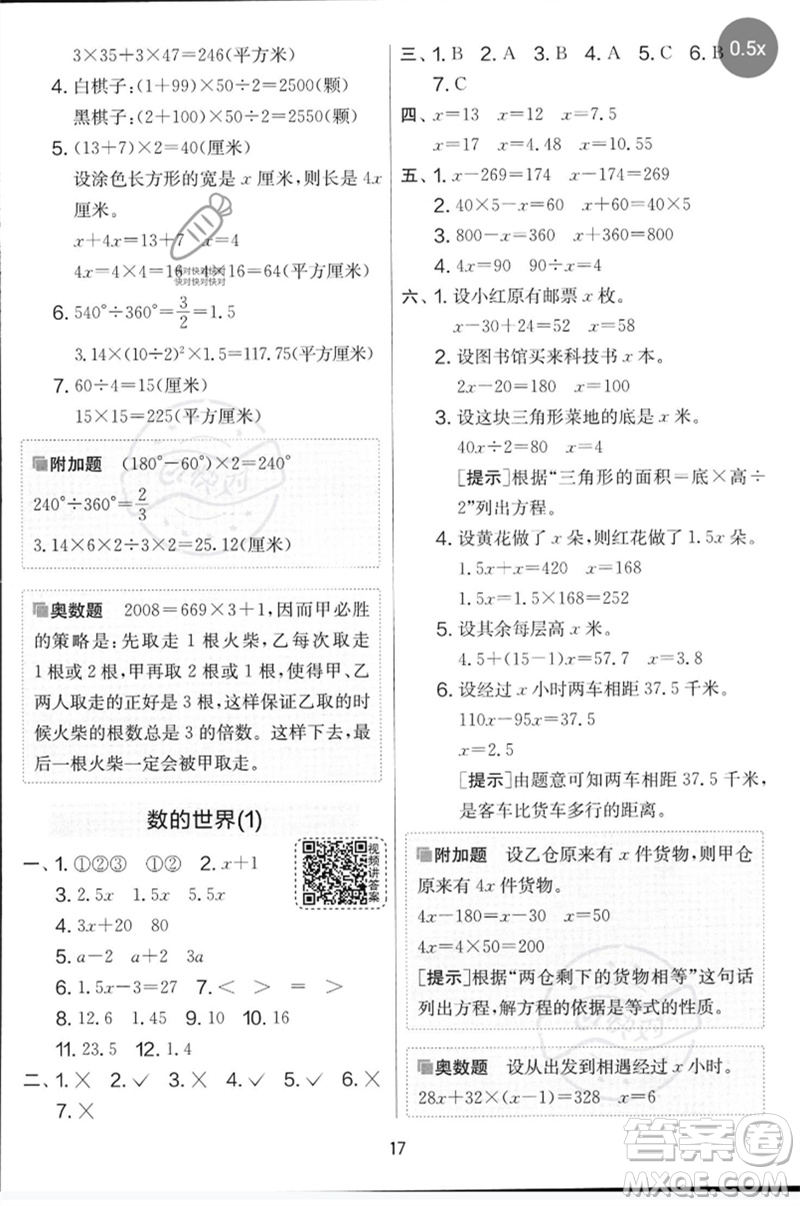 3×35+3×47=246(平方米)
4. 白棋子:(1+99)×50÷2=2500(颗)
黑棋子:(2+100)×50÷2=2550(颗)
5. (13+7)×2=40(厘米)
设涂色长方形的宽是 x 厘米,则长是 4x
厘米。
x+4x=13+7 x=4
4x=4×4=16 4×16=64(平方厘米)
快对快对快对
快对快对快对
6. 540°÷360°=3/2=1.5
3.14×(10÷2)²×1.5=117.75(平方厘米)
7. 60÷4=15(厘米)
15×15=225(平方厘米)
附加题 (180°-60°)×2=240°
240°÷360°=2/3
3.14×6×2÷3×2=25.12(厘米)
奥数题 2008=669×3+1,因而甲必胜
的策略是:先取走 1 根火柴,乙每次取走
1 根或 2 根,甲再取 2 根或 1 根,使得甲、乙
两人取走的正好是 3 根,这样保证乙取的时
候火柴的根数总是 3 的倍数。这样下去,最
后一根火柴一定会被甲取走。
数的世界(1)
视频讲答案
一、1. ①②③ ①② 2. x+1
3. 2.5x 1.5x 5.5x
4. 3x+20 80
5. a-2 a+2 3a
6. 1.5x-3=27 7. < > = >
8. 12.6 1.45 9. 10 10. 16
11. 23.5 12. 1.4
二、1. × 2. ✓ 3. × 4. ✓ 5. ✓ 6. ×
7. ×
三、1. B 2. A 3. B 4. C 5. C 6. B
7. C
0.5x
四、x=13 x=12 x=7.5
x=17 x=4.48 x=10.55
五、1. x-269=174 x-174=269
2. 40×5-x=60 x+60=40×5
3. 800-x=360 x+360=800
4. 4x=90 90÷x=4
六、1. 设小红原有邮票 x 枚。
x-30+24=52 x=58
2. 设图书馆买来科技书 x 本。
2x-20=180 x=100
3. 设这块三角形菜地的底是 x 米。
40x÷2=80 x=4
[提示]根据“三角形的面积=底×高÷
2”列出方程。
4. 设黄花做了 x 朵,则红花做了 1.5x 朵。
1.5x+x=420 x=168
1.5x=1.5×168=252
5. 设其余每层高 x 米。
4.5+(15-1)x=57.7 x=3.8
6. 设经过 x 小时两车相距 37.5 千米。
110x-95x=37.5
x=2.5
[提示]由题意可知两车相距 37.5 千米,
是客车比货车多行的距离。
附加题 设乙仓原来有 x 件货物,则甲仓
原来有 4x 件货物。
4x-180=x-30 x=50
4x=4×50=200
[提示]根据“两仓剩下的货物相等”这句话
列出方程,解方程的依据是等式的性质。
奥数题 设从出发到相遇经过 x 小时。
28x+32×(x-1)=328 x=6
17
答案卷
MXQE.COM